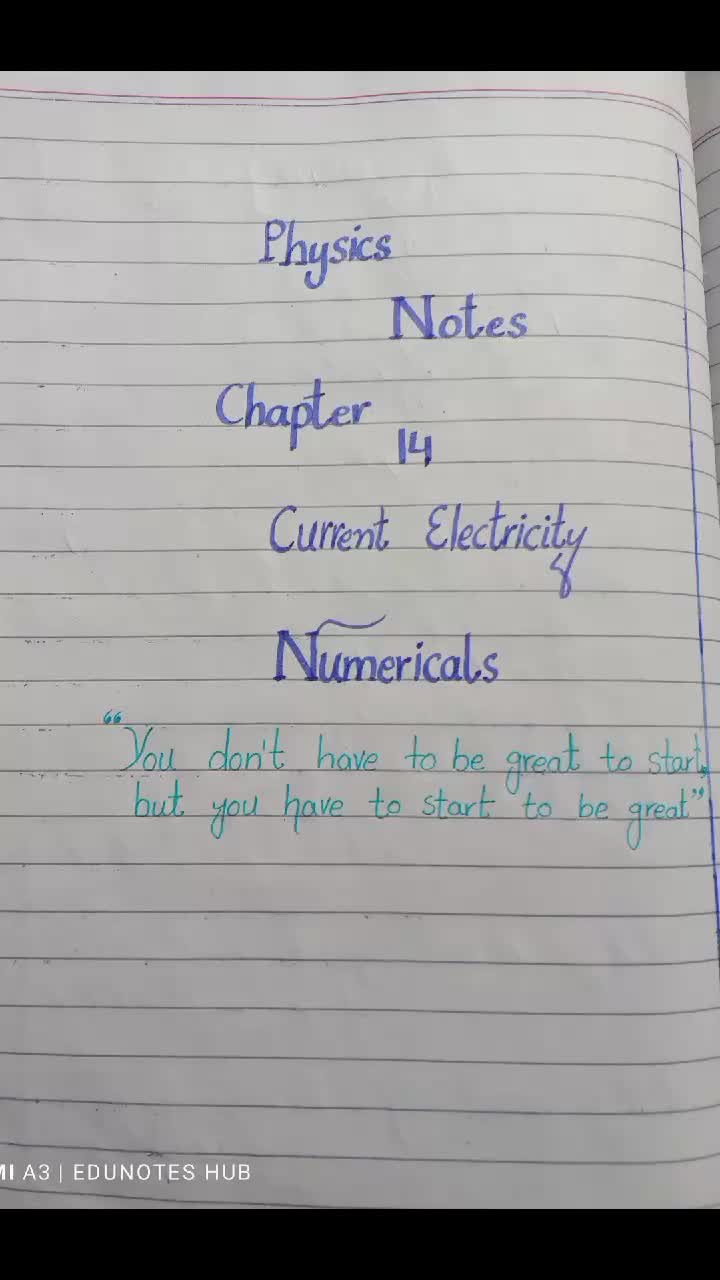 Physics
Notes
Chapter
14
Current Electricity
&
Numericals
“You don't have to be great to start,
but you have to start to be great”
MI A3 | EDUNOTES HUB